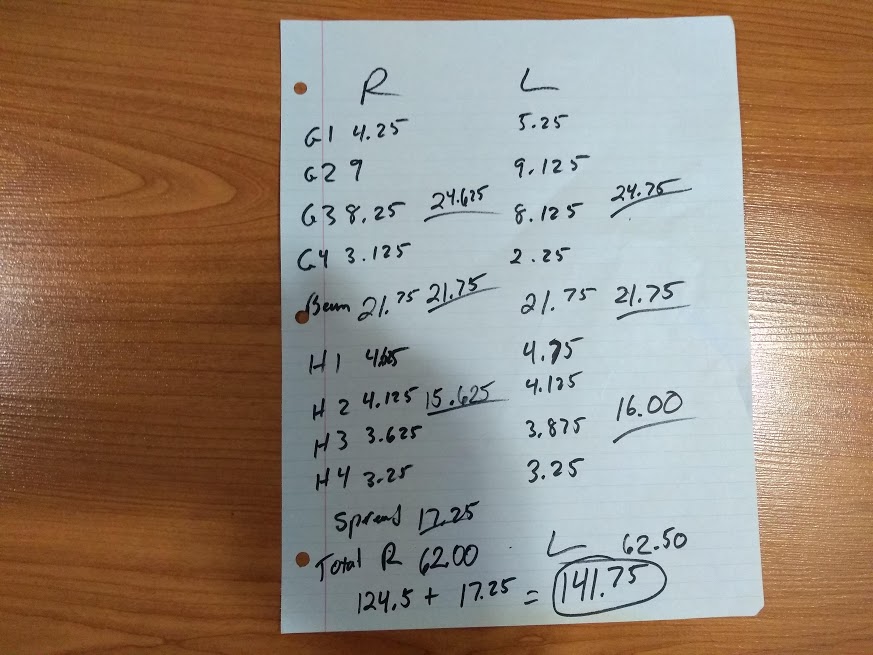 R L
G1 4.25 5.25
G2 9 9.125
G3 8.25 24.625 8.125 24.75
G4 3.125 2.25
Beam 21.75 21.75 21.75 21.75
H1 4.625 4.75
H2 4.125 15.625 4.125
16.00
H3 3.625 3.875
H4 3.25 3.25
Spread 17.25
Total R 62.00 L 62.50
124.5 + 17.25 = 141.75